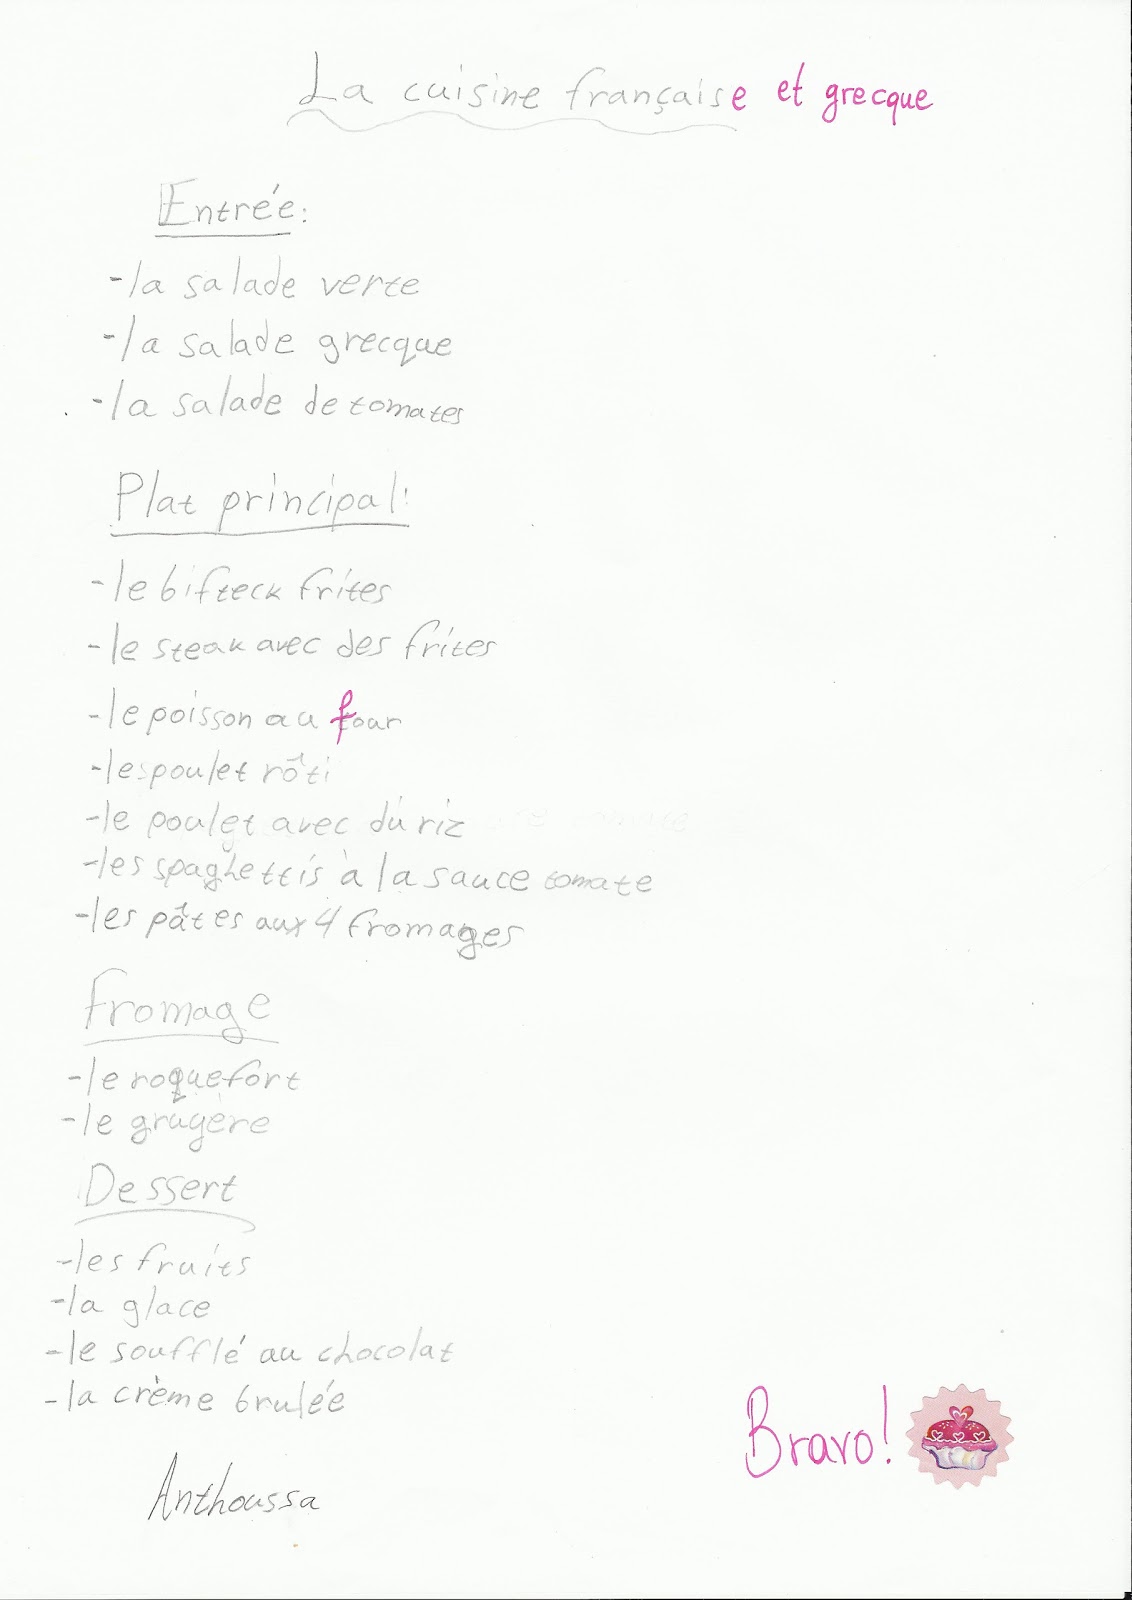 La cuisine française et grecque
Entrée:
-la salade verte
-la salade grecque
-la salade de tomates
Plat principal:
-le bifteck frites
-le steak avec des frites
-le poisson au four
-les poulet rôti
-le poulet avec du riz
-les spaghettis à la sauce tomate
-les pâtes aux 4 fromages
fromage
-le roquefort
-le gruyère
Dessert
-les fruits
-la glace
-le soufflé au chocolat
-la crème brulée
Bravo!
Anthoussa